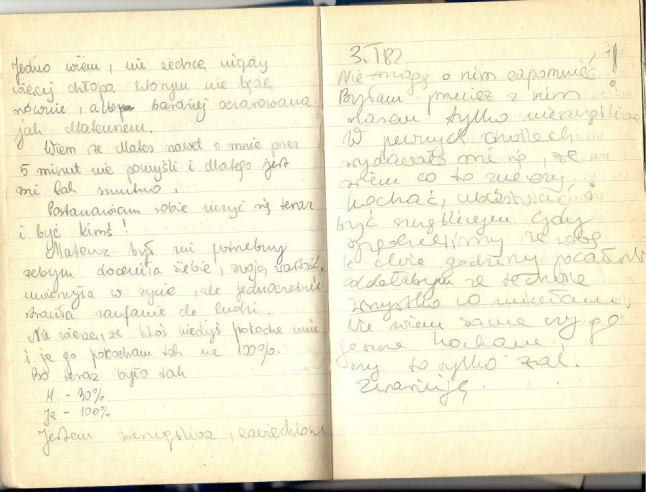 Jedno wiem, nie zechcę nigdy
więcej chłopa którym nie będę
równie, albo bardziej oczarowana
jak Mateuszem.
Wiem że Mates nawet o mnie przez
5 minut nie pomyśli i dlatego jest
mi tak smutno.
Postanawiam sobie uczyć się teraz
i być kimś!
Mateusz był mi potrzebny
żebym doceniła siebie, swoją wartość,
w życie, ale jednocześnie
straciła zaufanie do ludzi.
Nie wierzę, że ktoś kiedyś pokocha mnie
i ja go pokocham tak na 100%.
Bo teraz było tak
M. - 30%
Ja - 100%
Jestem nieszczęśliwa,
3.I 82.
Nie mogę o nim zapomnieć
Byłam przecież z nim
razem tylko
W pewnych chwilach
wydawało mi się, że
wiem co to znaczy
kochać,
być Gdy
ze sobą
te dwie godziny
oddałabym za te chwile
wszystko co miałam.
Nie wiem sama czy go
jeszcze kocham
czy to tylko żal.